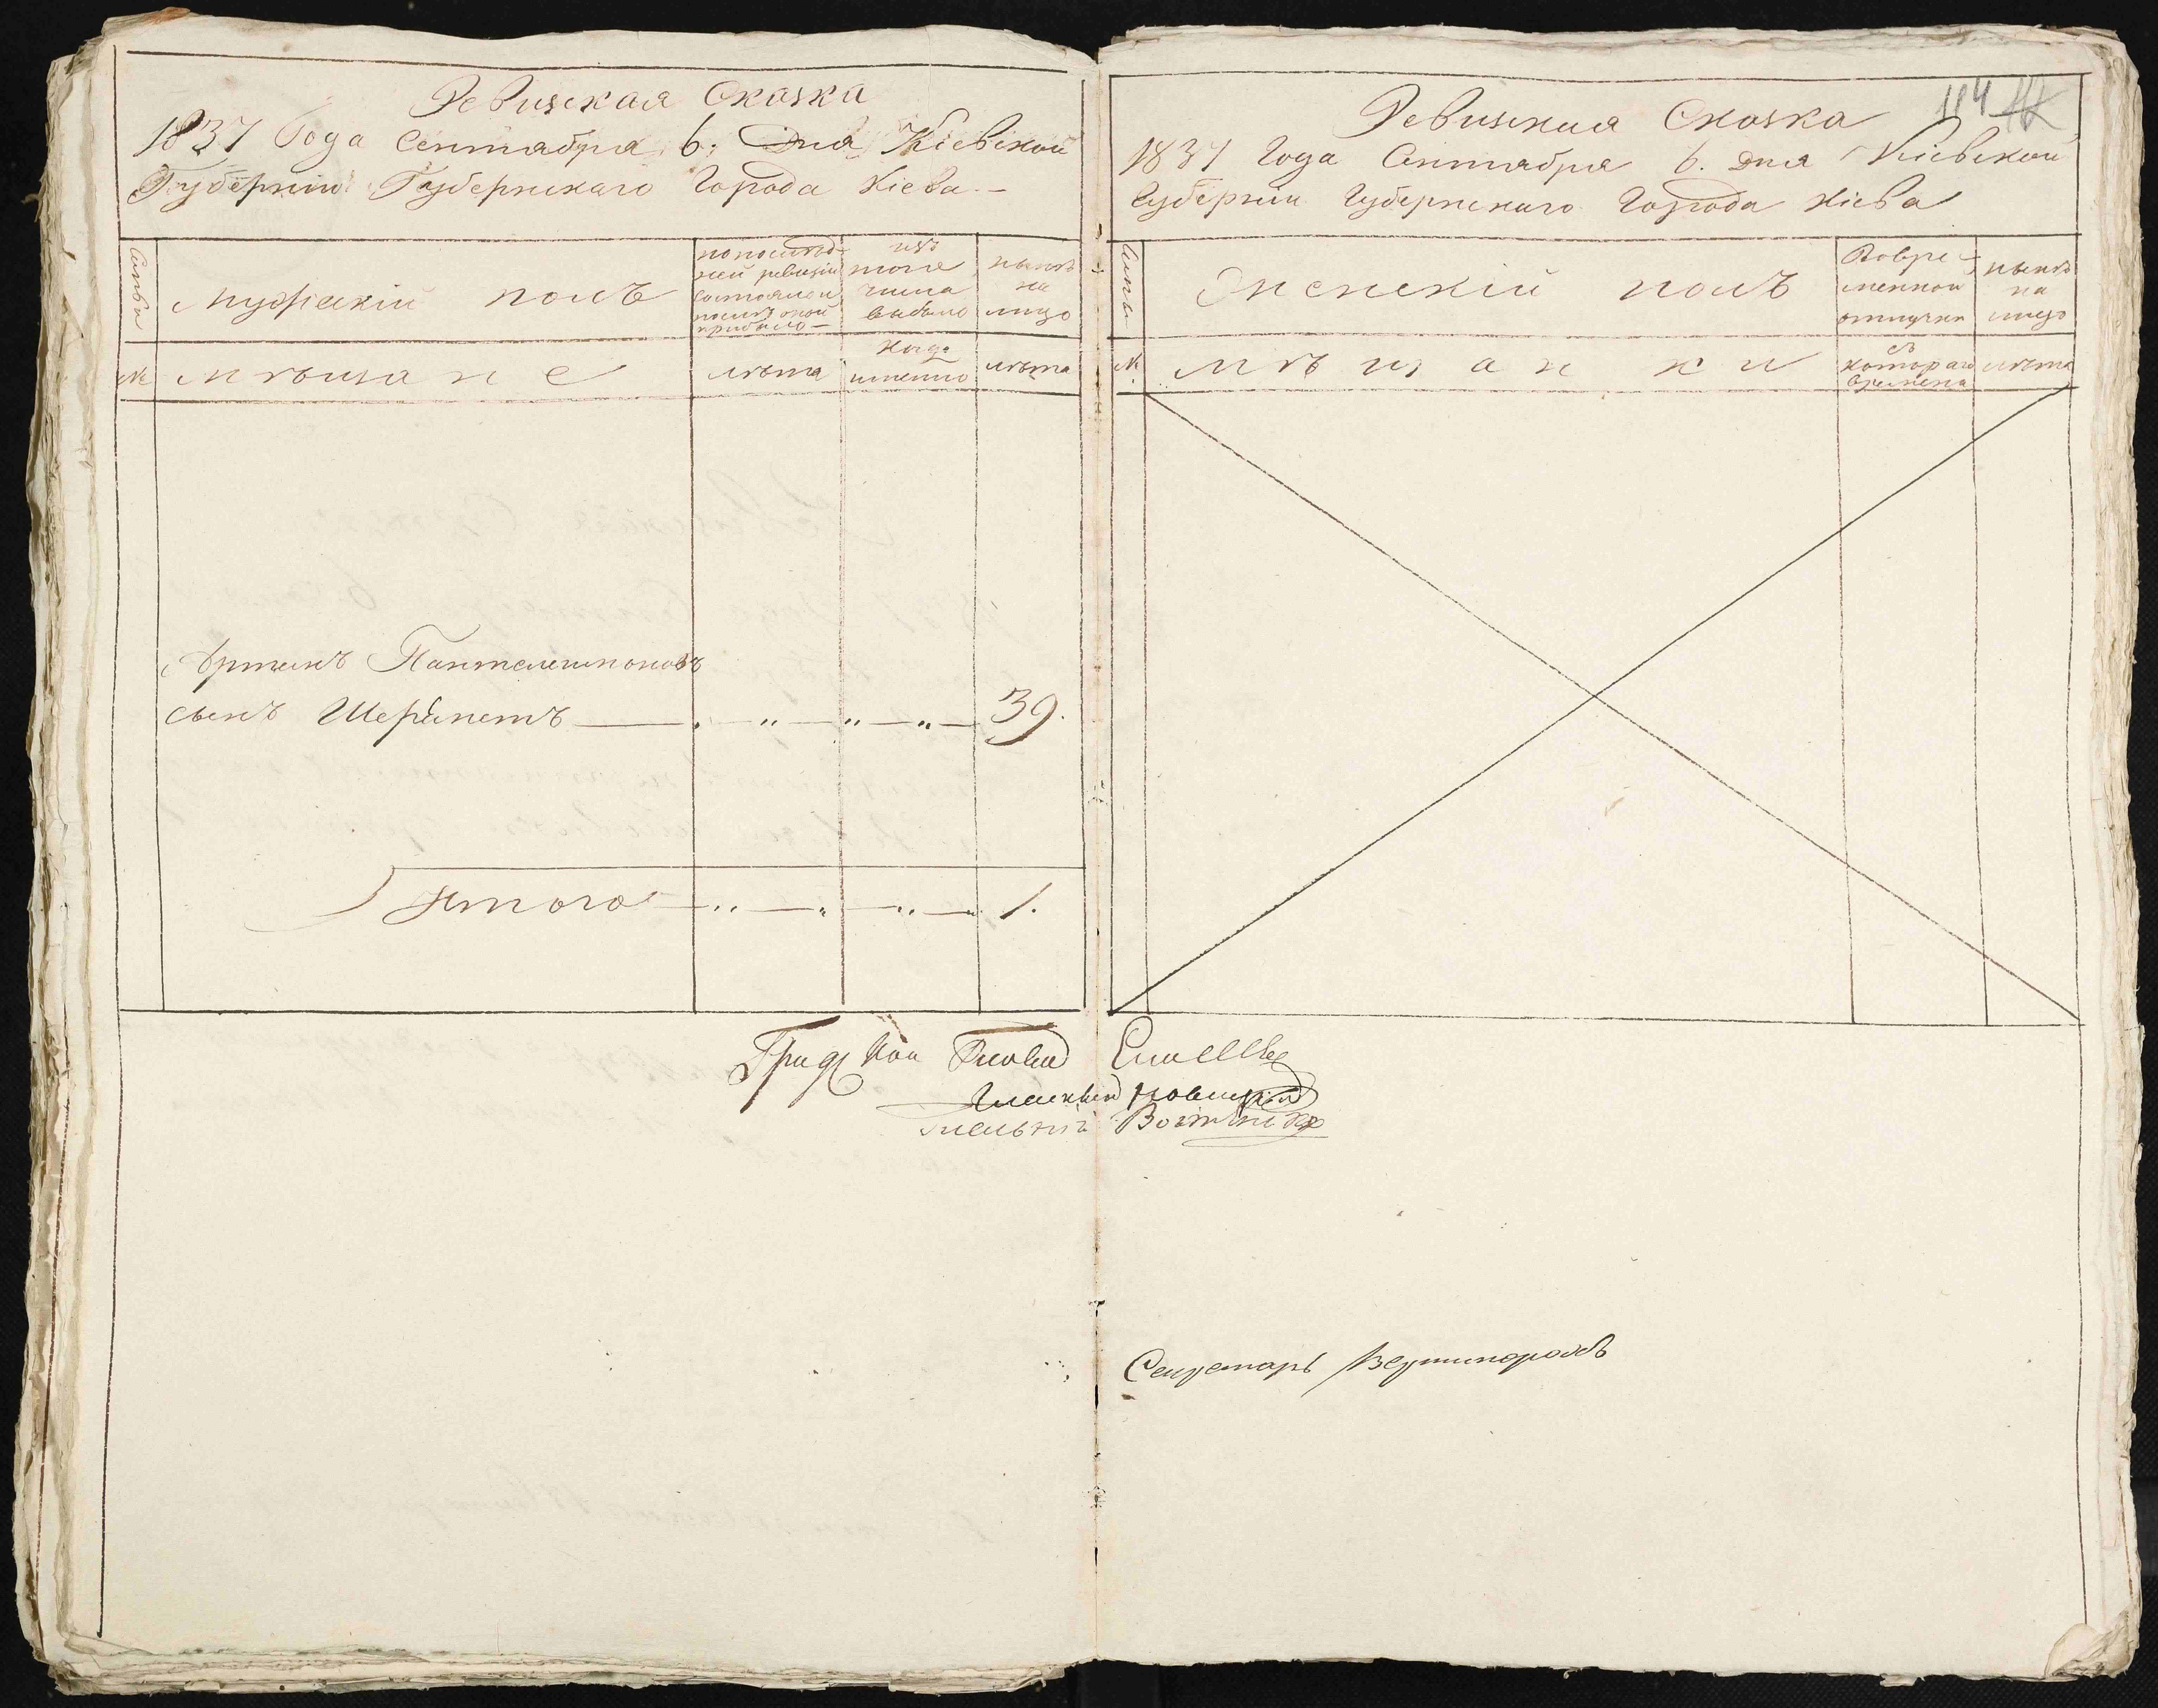 Ревизская Сказка
1837 Года Сентября 6. Дня Кіевской
Губерніи Губернскаго Города Кіева
Мужескій полъ
по послед-
ней ревизіи
состояло и
после оной
прибыло
изъ
того
числа
выбыло
ныне
на
лицо
№
мѣщане
лѣта
когда
именно
лѣта
Артемъ Пантелеимоновъ
сынъ Шереметъ 39.
Итого 1.
114
Ревизская Сказка
1837 Года Сентября 6. дня Кіевской
Губерніи Губернскаго Города Кіева
Женскій полъ
Вовре-
менной
отлучки
ныне
на
лицо
№
мѣщанки
съ
котораго
времена
лѣта
Градской Голова
Гласный
Гласный
Секретарь